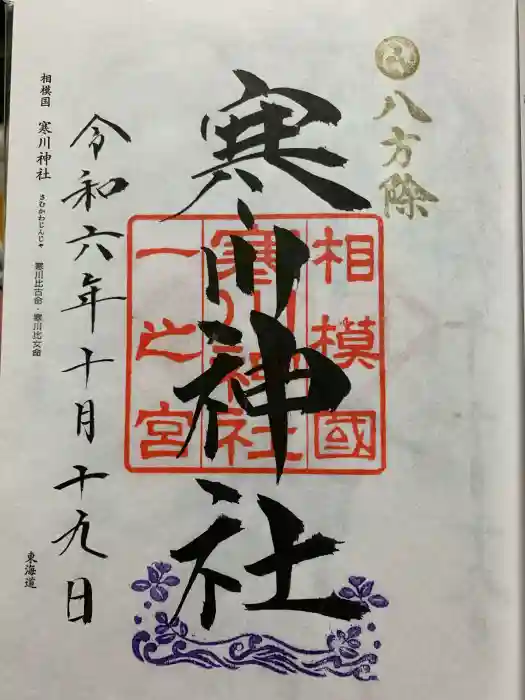 八方除
相模國
寒川神社
一之宮
寒川神社
令和六年十月十九日
相模国 寒川神社 さむかわじんじゃ 寒川比古命・寒川比女命
東海道